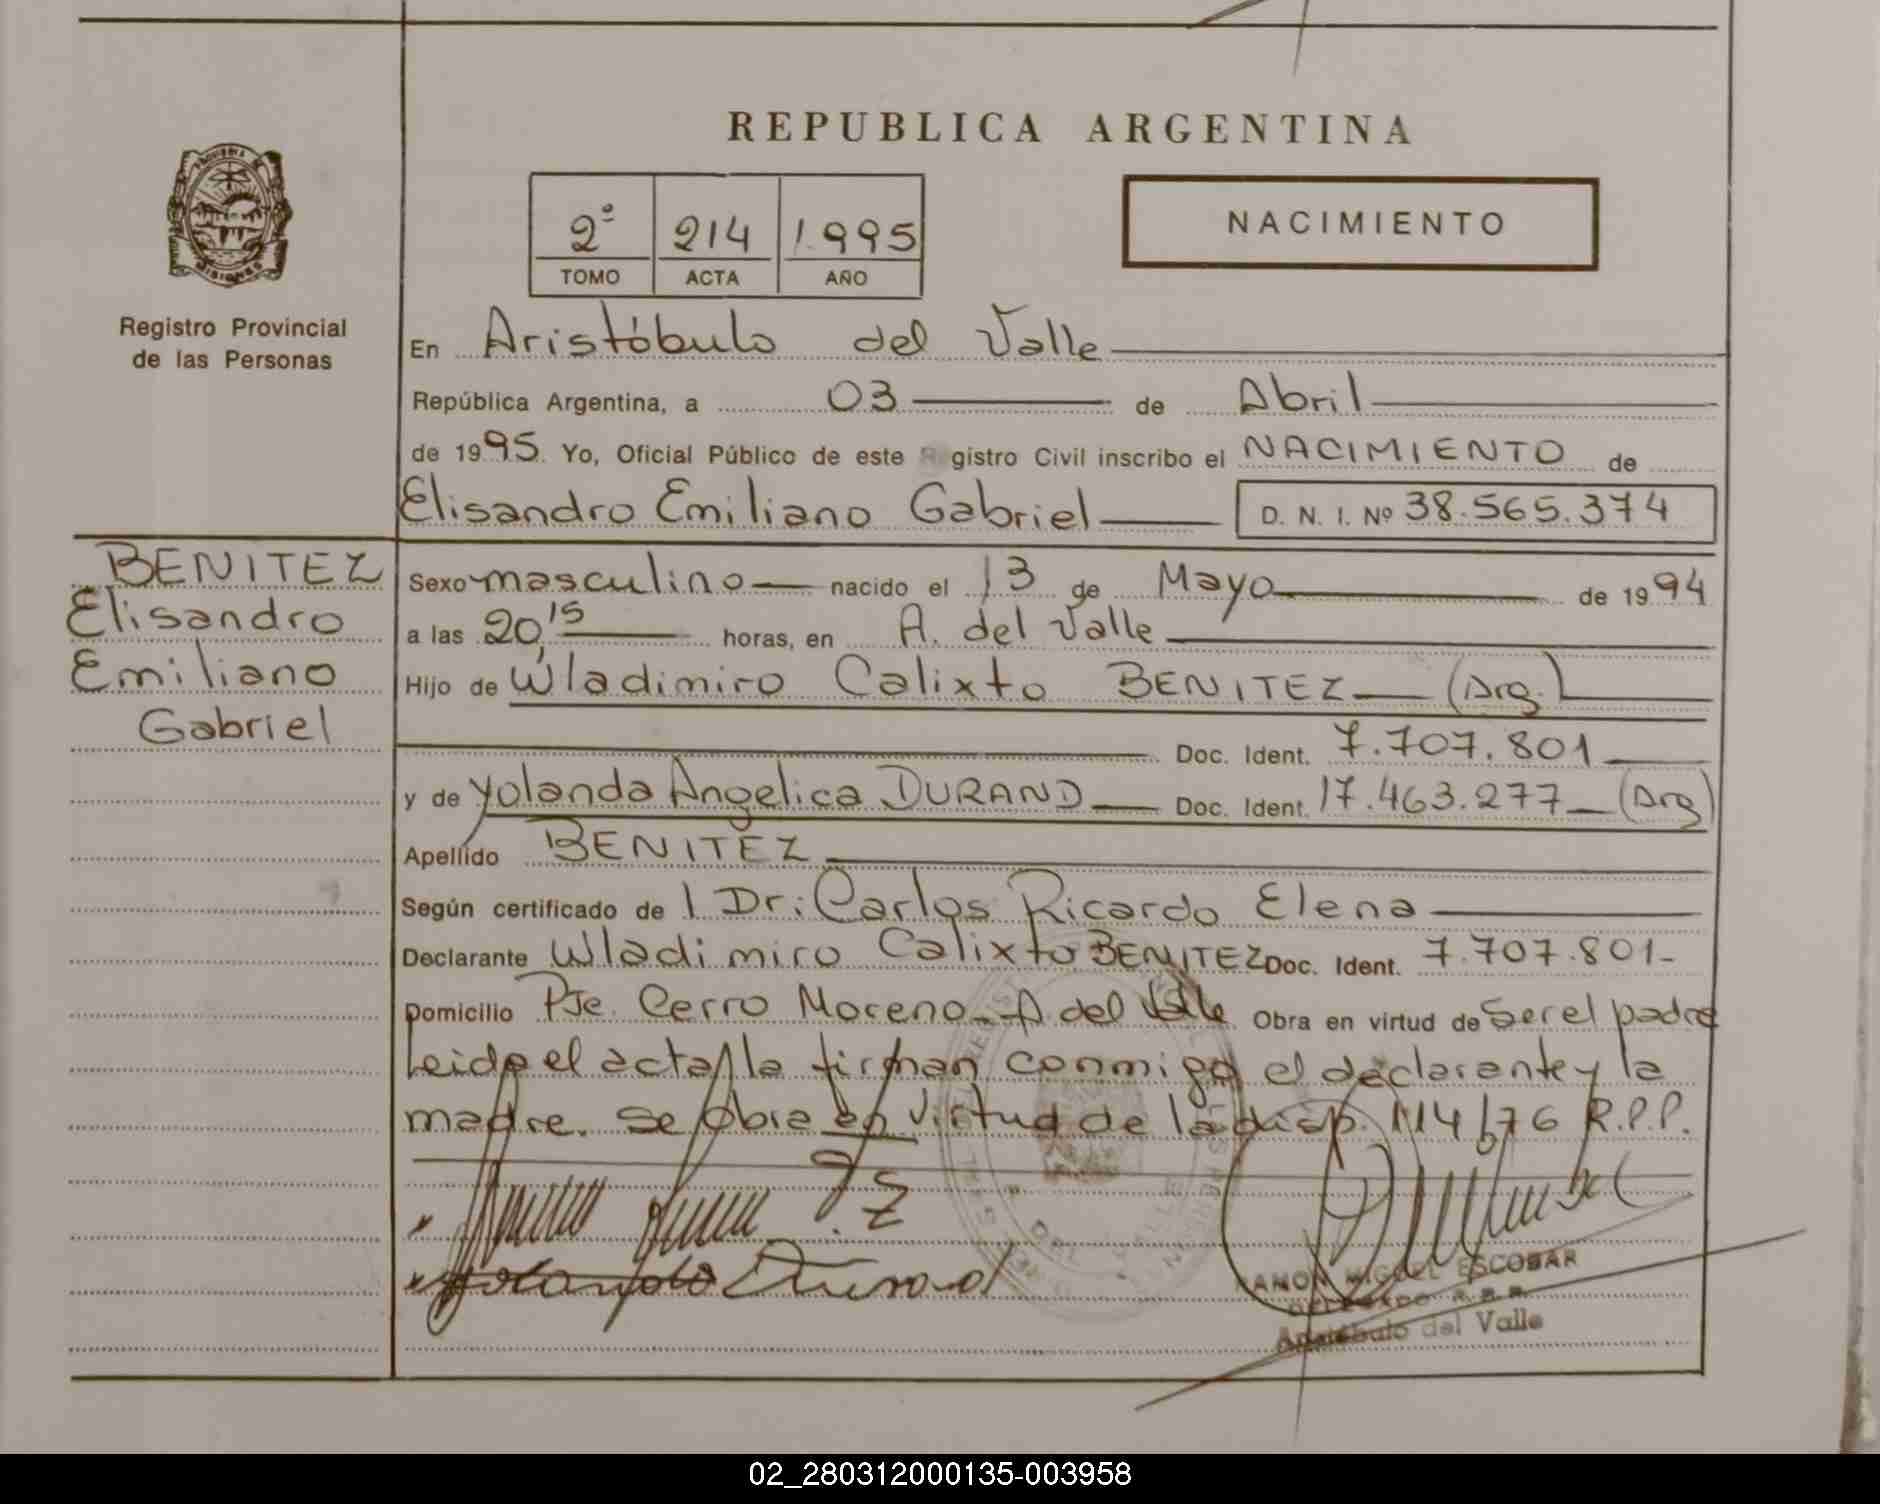 REPUBLICA ARGENTINA
PROVINCIA DE MISIONES
Registro Provincial
de las Personas
2º 214 1995
TOMO ACTA AÑO
NACIMIENTO
En Aristóbulo del Valle
República Argentina, a 03 de Abril
de 1995. Yo, Oficial Público de este Registro Civil inscribo el NACIMIENTO de
Elisandro Emiliano Gabriel D. N. I. Nº 38.565.374
BENITEZ
Elisandro
Emiliano
Gabriel
Sexo masculino nacido el 13 de Mayo de 1994
a las 20,15 horas, en A. del Valle
Hijo de Wladimiro Calixto BENITEZ (Arg.)
Doc. Ident. 7.707.801
y de Yolanda Angelica DURAND Doc. Ident. 17.463.277 (Arg)
Apellido BENITEZ
Según certificado de 1 Dr: Carlos Ricardo Elena
Declarante Wladimiro Calixto BENITEZ Doc. Ident. 7.707.801-
Domicilio Pje. Cerro Moreno - A del Valle Obra en virtud de Ser el padre
Leida el acta, la firman conmigo el declarante y la
madre. Se obra en virtud de la disp. 114/76 R.P.P.
Yolanda Durand
RAMON MIGUEL ESCOBAR
DELEGADO R.P.P.
Aristóbulo del Valle
02_280312000135-003958